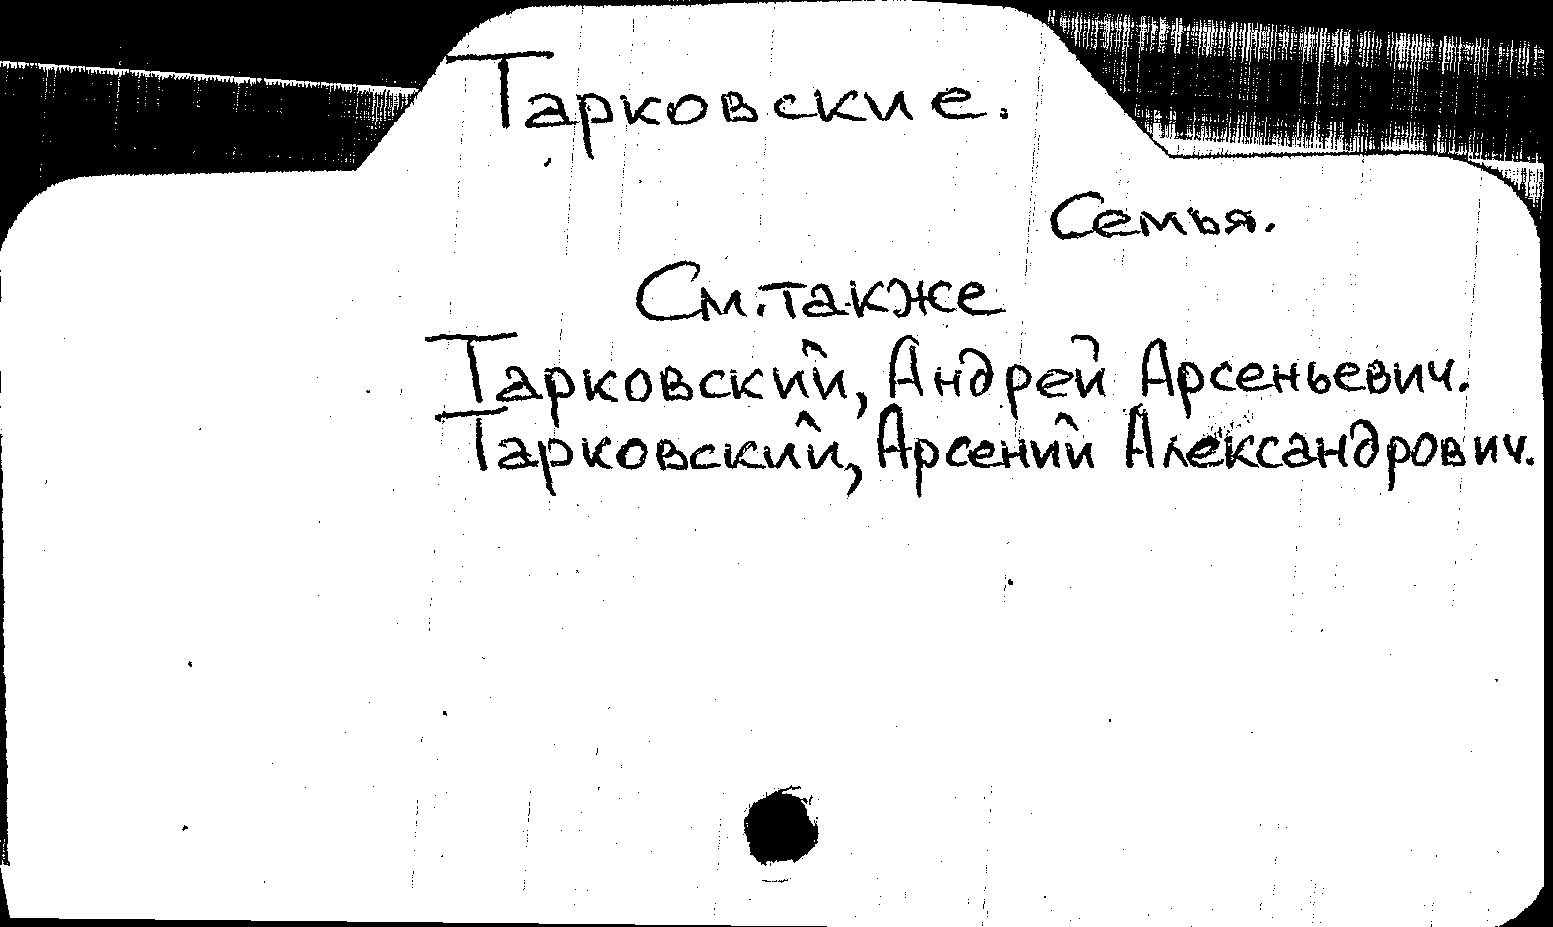 Тарковские.
Семья.
См. также
Тарковский, Андрей Арсеньевич.
Тарковский, Арсений Александрович.